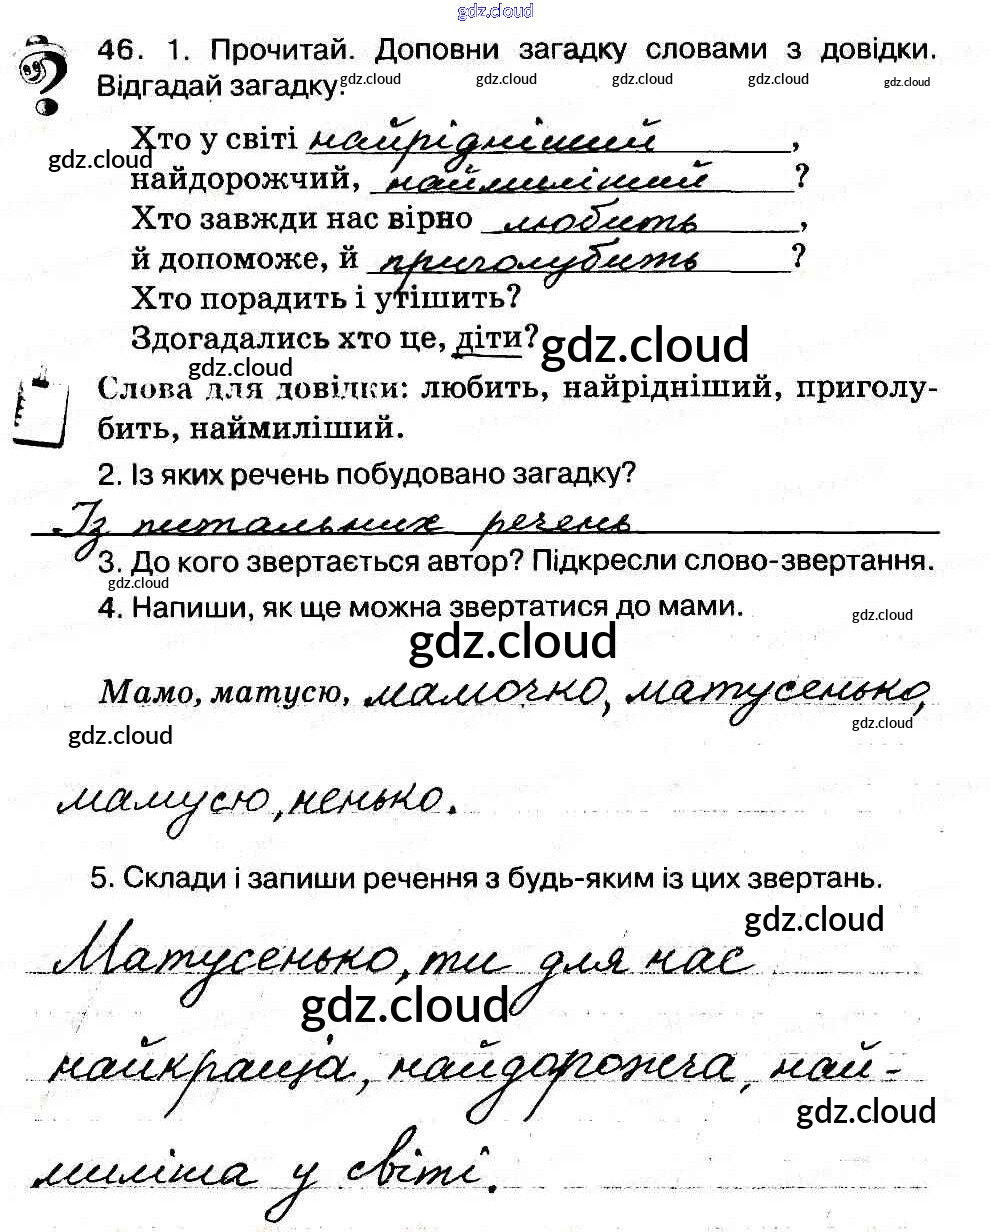 gdz.cloud
46. 1. Прочитай. Доповни загадку словами з довідки.
Відгадай загадку. gdz.cloud gdz.cloud gdz.cloud gdz.cloud gdz.cloud
Хто у світі найрідніший,
gdz.cloud
найдорожчий, наймиліший?
Хто завжди нас вірно любить,
й допоможе, й приголубить?
Хто порадить і утішить?
Здогадались хто це, діти? gdz.cloud
gdz.cloud
Слова для довідки: любить, найрідніший, приголу-
бить, наймиліший.
2. Із яких речень побудовано загадку?
Із питальних речень
3. До кого звертається автор? Підкресли слово-звертання.
gdz.cloud
4. Напиши, як ще можна звертатися до мами.
gdz.cloud
gdz.cloud
Мамо, матусю, мамочко, матусенько,
gdz.cloud
gdz.cloud
мамусю, ненько.
5. Склади і запиши речення з будь-яким із цих звертань.
gdz.cloud
Матусенько, ти для нас
gdz.cloud
найкраща, найдорожча, най-
gdz.cloud
миліша у світі.